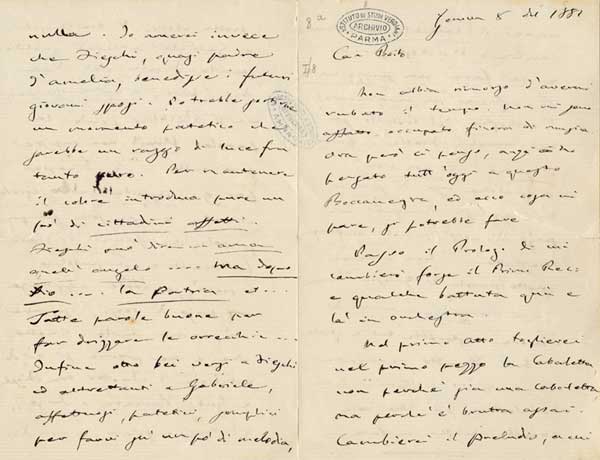 nulla. Io amerei invece
che Fieschi, quasi padre
d'Amelia, benedisse i futuri
giovani sposi. Potrebbe sortirne
un momento patetico che
sarebbe un raggio di luce fra
tanto nero. Per mantenere
il colore introdurre pure un
pò di cittadini affetti.
Fieschi può dire ... amar
quell'angelo .... ma dopo
Dio .... la Patria et...
Tutte parole buone per
far drizzare le orrecchie ...
Infine otto bei versi a Fieschi
ed altrettanti a Gabriele,
affettuosi, patetici, semplici
per farvi sù un pò di melodia,
8a
I/8
ISTITUTO DI STUDI VERDIANI
ARCHIVIO
PARMA
Genova 8 del 1881
Car Boito
Non abbia rimorso d'avermi
rubato il tempo. Non mi sono
affatto occupato finora di musica
Ora però ci penso, anzi ci ho
pensato tutt'oggi a questo
Boccanegra, ed ecco cosa mi
pare, si potrebbe fare
Passo il Prologo di cui
cambierei forse il Primo Rec:
e qualche battuta quà e
là in orchestra.
Nel primo atto toglierei
nel primo pezzo la Cabaletta,
non perchè sia una cabaletta,
ma perchè è brutta assai.
Cambierei il preludio, a cui